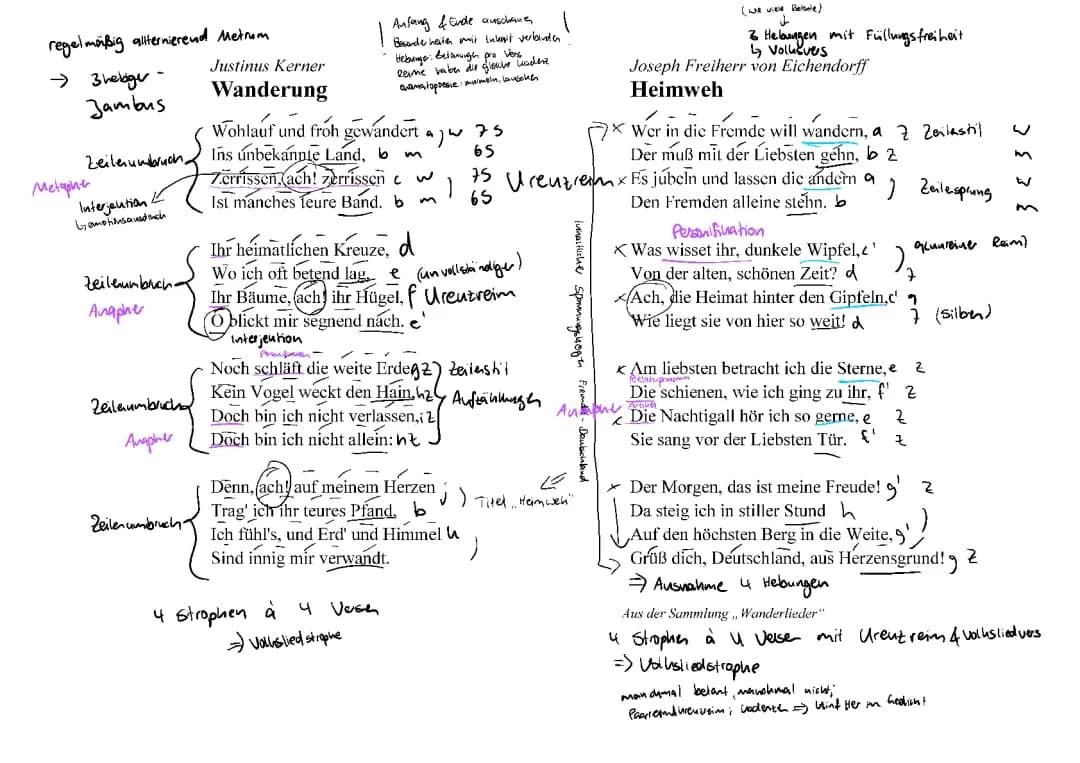 regelmäßig allternierend Metrum
→ 3hebiger -
Jambus
Anfang & Ende anschauen
Besonderheiten mit Inhalt verbinden
Hebungen: Betonungen pro Vers
Reime haben die gleiche Kadenz
onomatopoesie: murmeln, lauschen
Justinus Kerner
Wanderung
Wohlauf und froh gewandert a w 7S
Ins unbekannte Land, b m 6S
Zerrissen, ach! zerrissen c w 7S
Ist manches teure Band. b m 6S
Zeilenumbruch
Metapher
Interjektion
↳ emotionsausdruck
Kreuzreim
Ihr heimatlichen Kreuze, d
Wo ich oft betend lag, e (unvollständiger)
Ihr Bäume, ach! ihr Hügel, f Kreuzreim
O blickt mir segnend nach. e'
Interjektion
Zeilenumbruch
Anapher
Noch schläft die weite Erde g Z Zeilenstil
Kein Vogel weckt den Hain, h Z Aufzählungen
Doch bin ich nicht verlassen, i Z
Doch bin ich nicht allein: h Z
Zeilenumbruch
Anapher
Denn, ach! auf meinem Herzen j
Trag' ich ihr teures Pfand, b
Ich fühl's, und Erd' und Himmel k
Sind innig mir verwandt.
Zeilenumbruch
Titel „Heimweh"
4 Strophen à 4 Versen
⇒ Volksliedstrophe
3 Hebungen mit Füllungsfreiheit
↳ Volksvers
Joseph Freiherr von Eichendorff
Heimweh
× Wer in die Fremde will wandern, a Z Zeilenstil w
Der muß mit der Liebsten gehn, b Z m
× Es jubeln und lassen die andern a Zeilesprung w
Den Fremden alleine stehn. b m
Personifikation
× Was wisset ihr, dunkle Wipfel, c' (unreiner Reim)
Von der alten, schönen Zeit? d 7
× Ach, die Heimat hinter den Gipfeln, c' 9
Wie liegt sie von hier so weit! d 7 (Silben)
× Am liebsten betracht ich die Sterne, e Z
Die schienen, wie ich ging zu ihr, f' Z
Anapher
× Die Nachtigall hör ich so gerne, e Z
Sie sang vor der Liebsten Tür. f' Z
Der Morgen, das ist meine Freude! g' Z
Da steig ich in stiller Stund h
Auf den höchsten Berg in die Weite, g'
Grüß dich, Deutschland, aus Herzensgrund! g Z
⇒ Ausnahme 4 Hebungen
inhaltlicher Spannungsbogen Fremde - Deutschland
Aus der Sammlung „Wanderlieder"
4 Strophen à 4 Versen mit Kreuzreim & volksliedvers
⇒ Volksliedstrophe
manchmal betont, manchmal nicht;